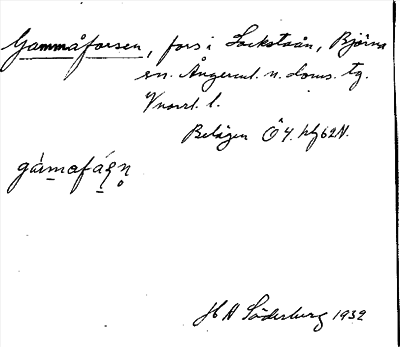 Gammåforsen, fors i Lockstaån, Björna
sn. Ångerml. n. doms. tg.
Vnorrl. l.
Belägen Ö4. hfg62N.
gámafáṣṇ
H A Söderberg 1932